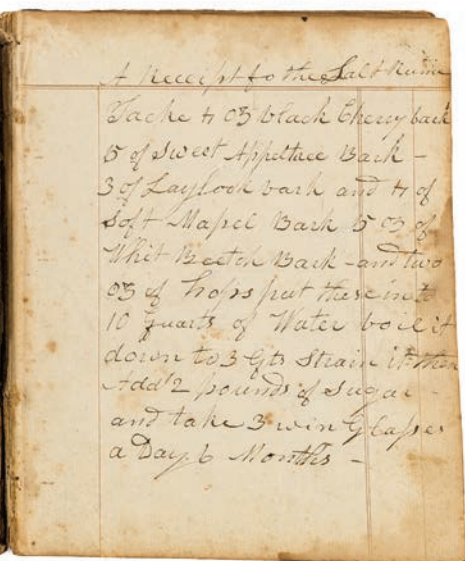 A Receipt fo the Salt Rume
Tacke 4 oz black Cherry bark
5 of Sweet Appeltree Bark -
3 of Laylook bark and 4 of
Soft Mapel Bark 5 oz of
Whit Beetch Bark - and two
oz of hops put these in to
10 quarts of Water boil it
down to 3 Qts Strain it then
Add 2 pounds of Sugar
and take 3 win Glasses
a Day 6 Months -